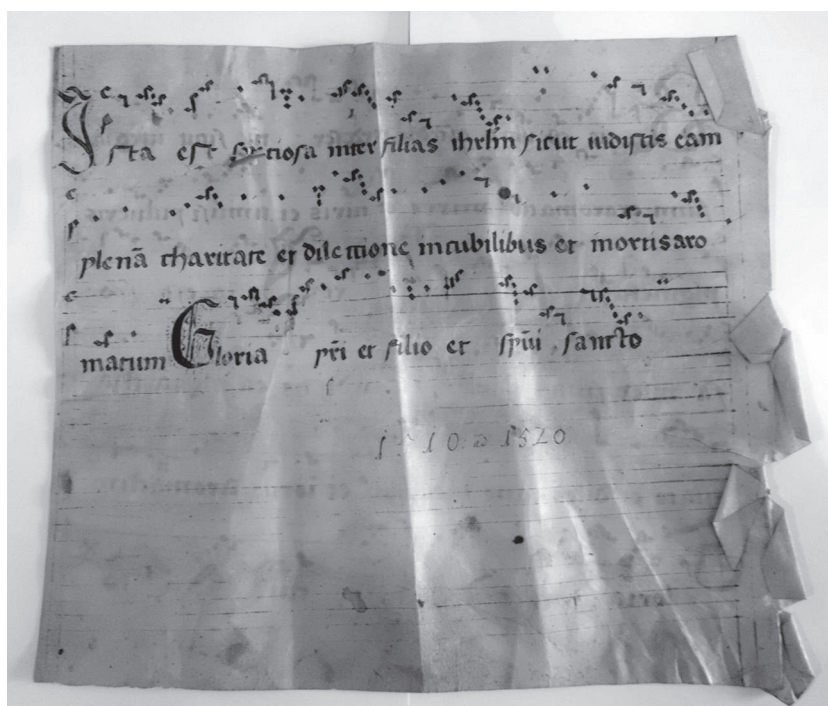 Ista est spetiosa inter filias ihrlm sicut uidistis eam
plenā charitate et dilectione incubilibus et mortis aro
matum Gloria pr̄i et filio et sp̄ui sancto
1520